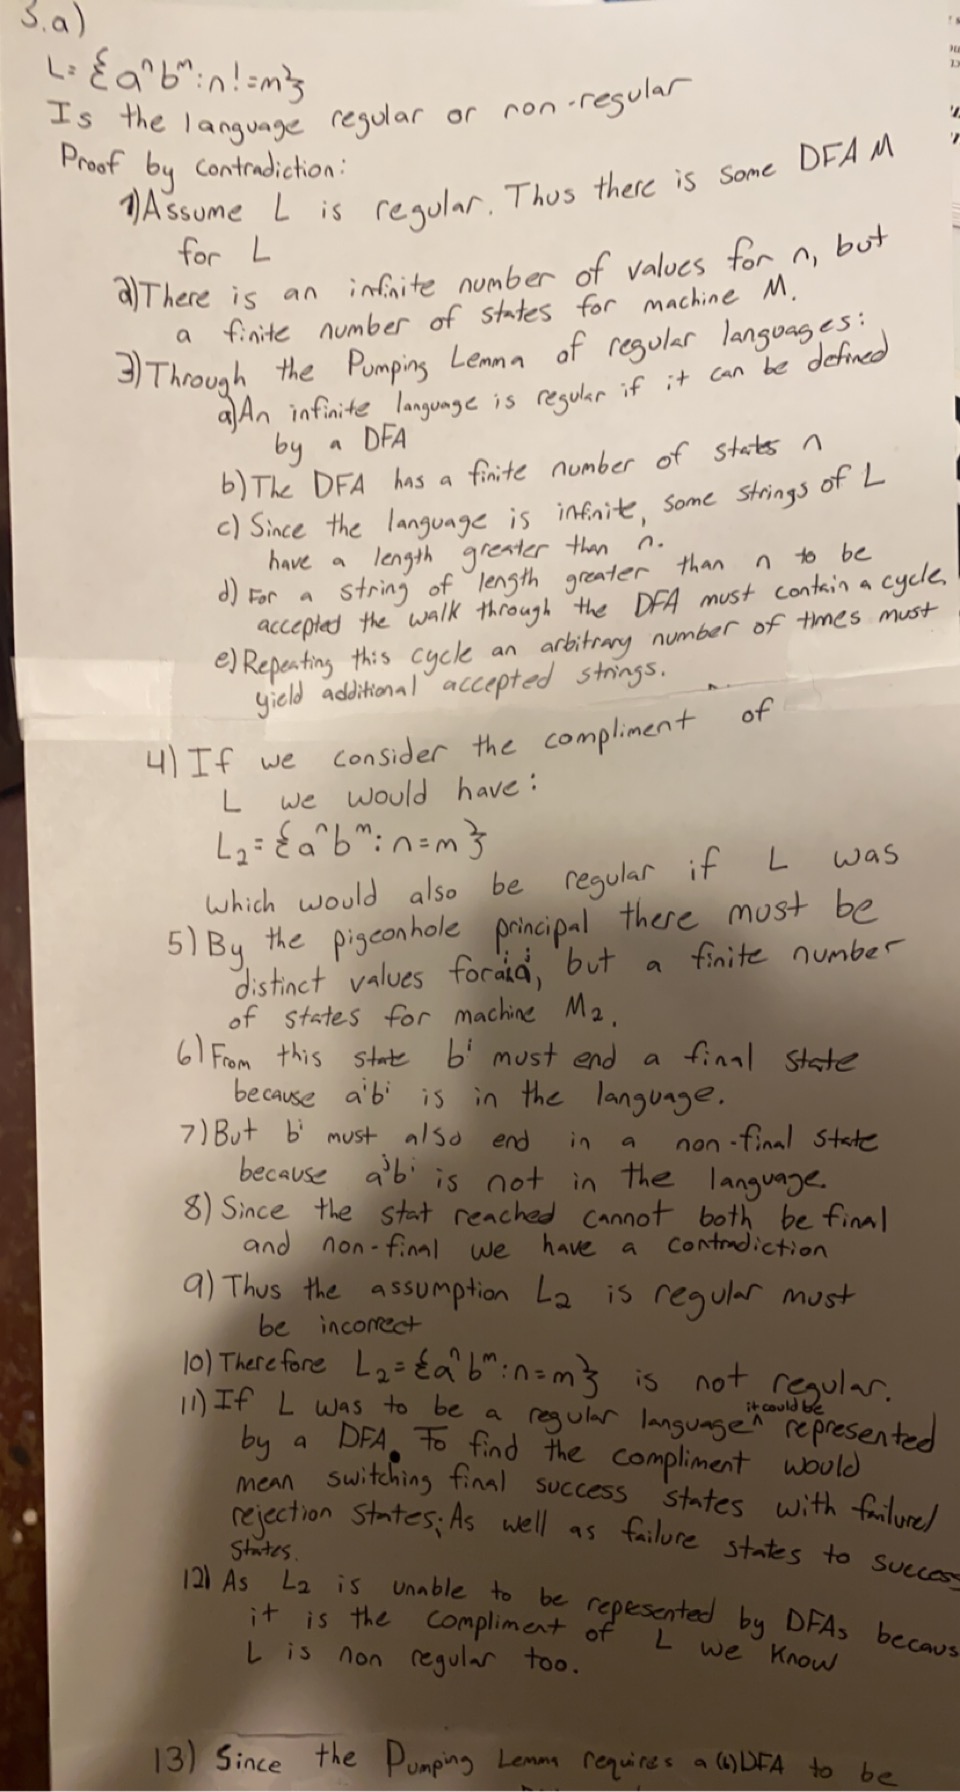 3.a)
L= {aⁿbᵐ: n!=m}
Is the language regular or non-regular
Proof by contradiction:
1) Assume L is regular. Thus there is some DFA M
for L
2) There is an infinite number of values for n, but
a finite number of states for machine M.
3) Through the Pumping Lemma of regular languages:
a) An infinite language is regular if it can be defined
by a DFA
b) The DFA has a finite number of states n
c) Since the language is infinite, some strings of L
have a length greater than n.
d) For a string of length greater than n to be
accepted the walk through the DFA must contain a cycle.
e) Repeating this cycle an arbitrary number of times must
yield additional accepted strings.
4) If we consider the compliment of
L we would have:
L₂ = {aⁿbᵐ: n=m}
which would also be regular if L was
5) By the pigeonhole principal there must be
distinct values for, but a finite number
of states for machine M₂.
6) From this state bⁱ must end a final state
because aⁱbⁱ is in the language.
7) But bⁱ must also end in a non-final state
because aʲbⁱ is not in the language.
8) Since the stat reached cannot both be final
and non-final we have a contradiction
9) Thus the assumption L₂ is regular must
be incorrect
10) Therefore L₂ = {aⁿbᵐ: n=m} is not regular.
11) If L was to be a regular language ^ it could be represented
by a DFA. To find the compliment would
mean switching final success states with failure/
rejection states; As well as failure states to success
states.
12) As L₂ is unable to be represented by DFAs becaus
it is the compliment of L we know
L is non regular too.
13) Since the Pumping Lemma requires a DFA to be